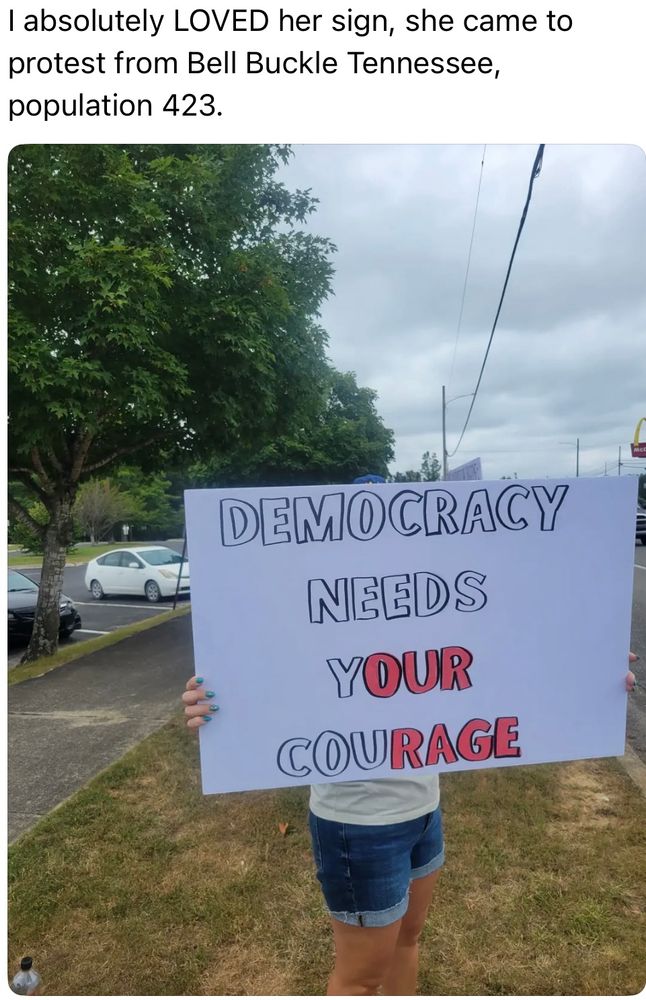 I absolutely LOVED her sign, she came to
protest from Bell Buckle Tennessee,
population 423.
DEMOCRACY
NEEDS
YOUR
COURAGE